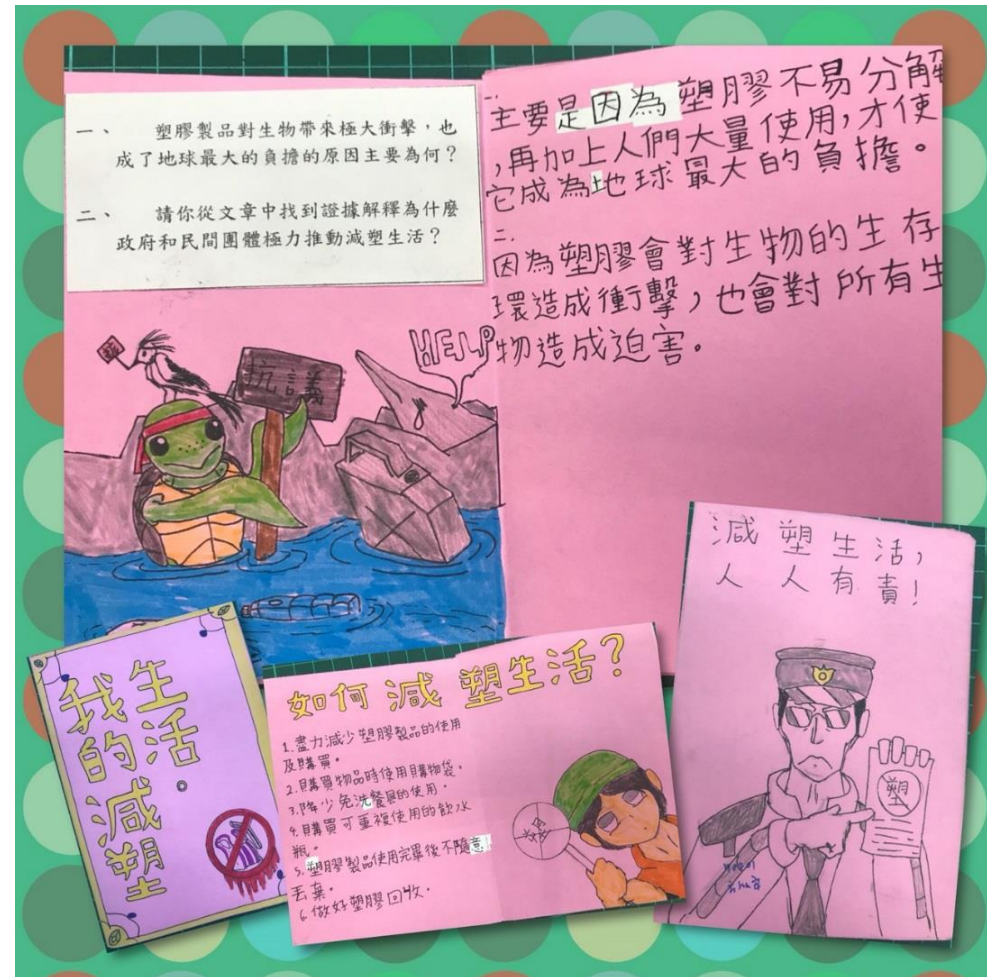 一、 塑膠製品對生物帶來極大衝擊，也
成了地球最大的負擔的原因主要為何？
二、 請你從文章中找到證據解釋為什麼
政府和民間團體極力推動減塑生活？
一.
主要是因為塑膠不易分解
,再加上人們大量使用,才使
它成為地球最大的負擔。
二.
因為塑膠會對生物的生存
環造成衝擊,也會對所有生
物造成迫害。
抗議
HELP
我的減塑
生活。
如何減塑生活?
1.盡力減少塑膠製品的使用
及購買。
2.購買物品時使用購物袋。
3.降少免洗餐具的使用。
4.購買可重複使用的飲水
瓶。
5.塑膠製品使用完畢後不隨意
丟棄。
6.做好塑膠回收。
減塑生活,
人人有責!
塑